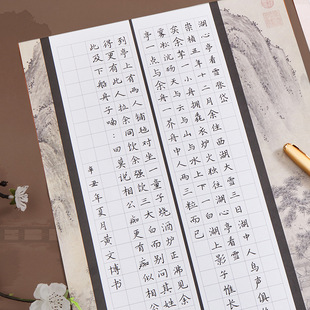 湖心亭看雪张岱
崇祯五年十二月余住西湖大雪三日湖中人鸟声俱
余挐一小舟拥毳衣炉火独往湖心亭看雪
雾凇沆砀天与云与山与水上下一白湖上影子惟长
亭一点与余舟一芥舟中人两三粒而已
到亭上有两人铺毡对坐一童子烧酒炉正沸见余
得更有此人拉余同饮余强饮三大白而别问其姓
此及下船舟子喃喃曰莫说相公痴更有痴似相公
辛丑年夏月黄文博书